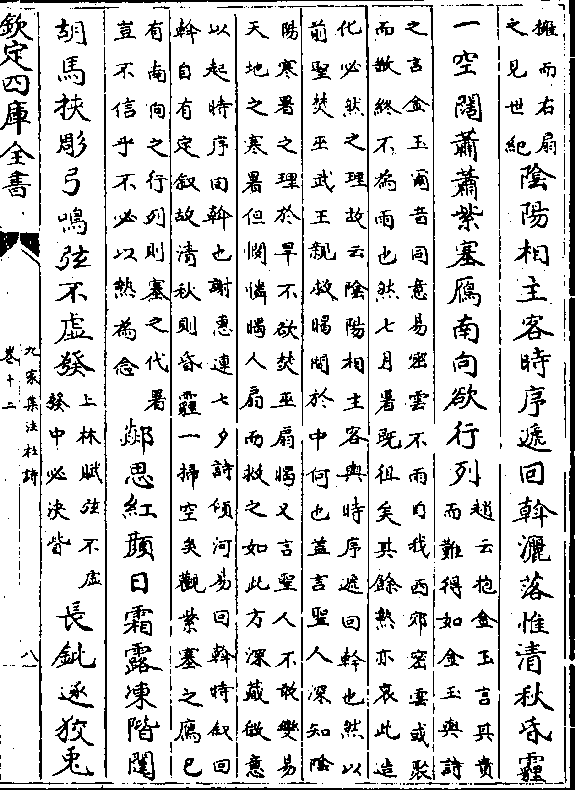 擁而右扇
之見世紀
陰陽相主客時序遞回斡灑落惟清秋昏霾
一空闊蕭蕭紫塞鴈南向欲行列
趙云抱金玉言其貴
而難得如金玉與詩
之言金玉爾音同意易密雲不雨自我西郊密雲或聚
而散終不為雨也然七月暑既徂矣其餘熱亦衰此造
化必然之理故云陰陽相主客與時序遞回斡也然以
前聖焚巫武王親救暍間於中何也蓋言聖人深知陰
陽寒暑之理於旱不欲焚巫扇暍又言聖人不敢變易
天地之寒暑但憫憐暍人扇而救之如此方深藏啟意
以起時序回斡也謝惠連七夕詩傾河易回斡時叙回
斡自有定叙故清秋則昏霾一掃空矣觀紫塞之鴈已
有南向之行列則塞之代暑
豈不信乎不必以熱為念
鄰思紅顔日霜露凍階闥
胡馬挾彫弓鳴弦不虛發
上林賦弦不虛
發中必決眥
長鈚逐狡兔
欽定四庫全書
九家集注杜詩
卷十二
八